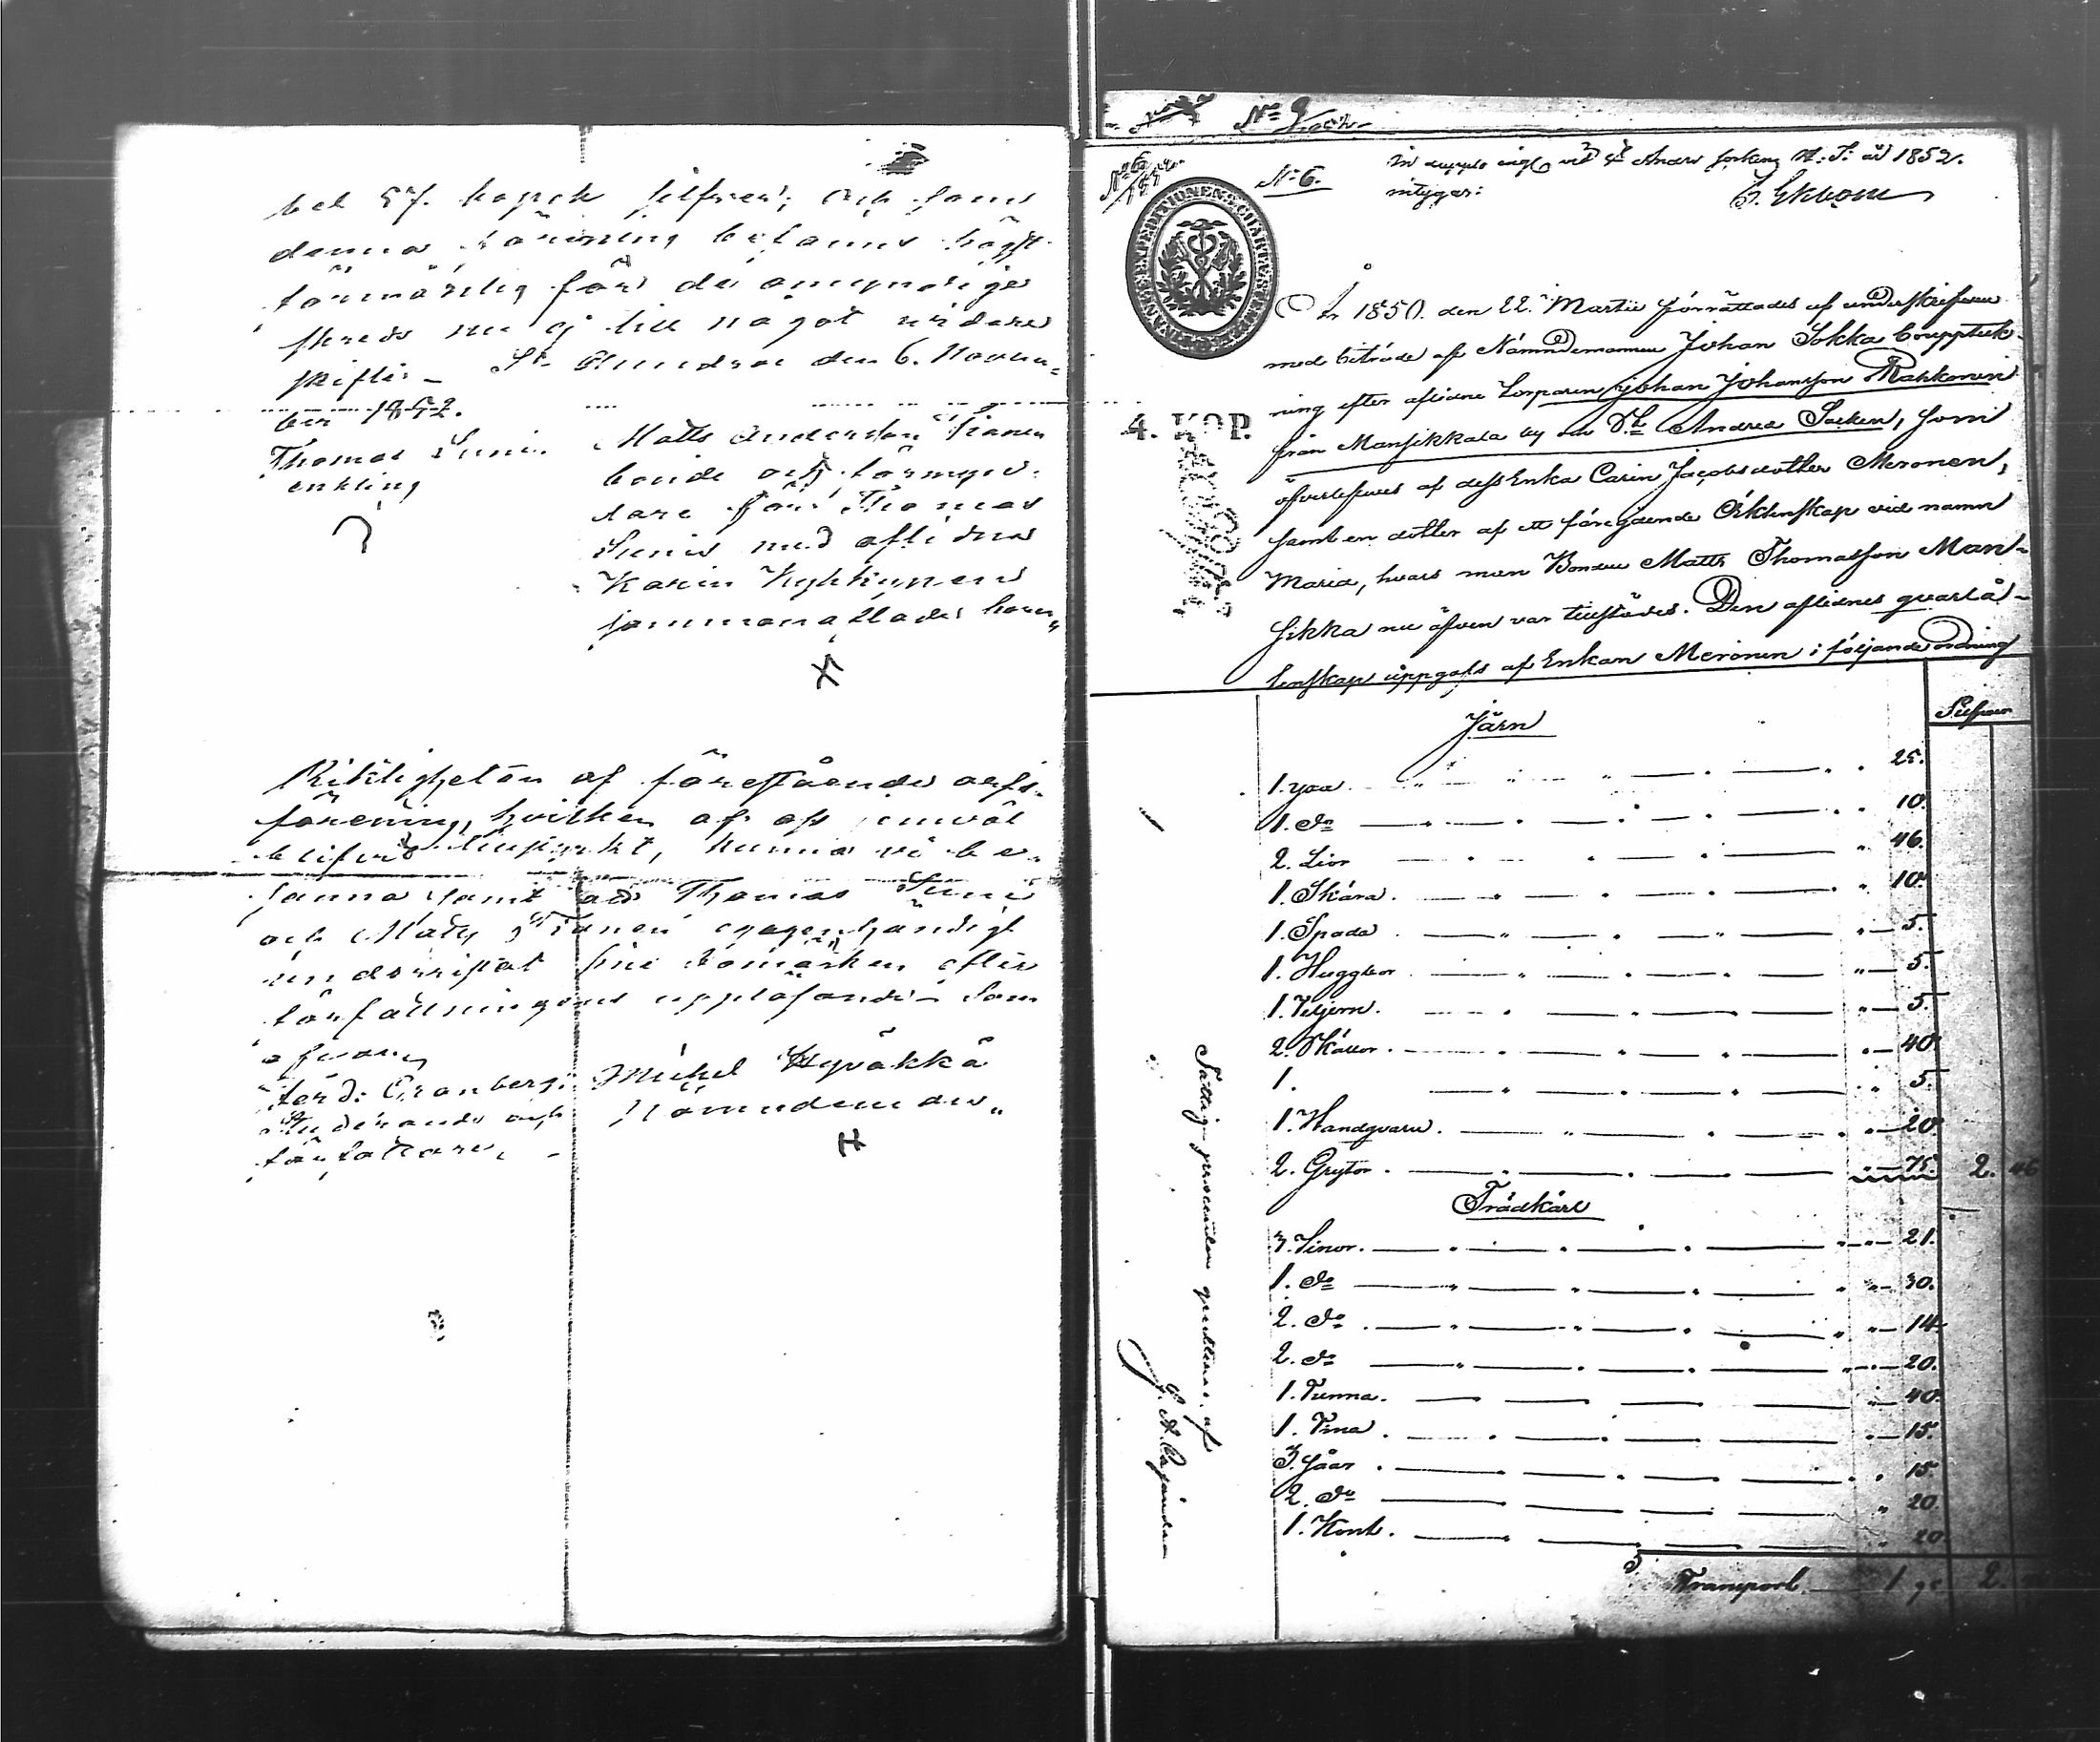 bel 57. kopek silfver; och som
denna förening befanns högst
förmånlig för de omyndige
skreds nu ej till något vidare
skifte – St Andreae den 6. Novem=
ber 1852.
Thomas Suni.
enkling
Matts Andersson
bonde och förmyn-
dare för Thomas
Sunis med aflidna
Karin Kykkynen
sammanaflade barn
Riktigheten af förestående arfs-
förening, hvilken af oss
blifvit tillspordt, kunna vi be-
sanna samt att Thomas Suni
och Matts egenhändigt
underristat sine bomärken efter
författningens uppläsande – Som
ofvan
Ferd: Granberg.
Studerande och
författare.
Michel Hyväkkä
Nämndeman
No 9
No 6.
In duppl ingl vid St Andrae 1852.
intygar:
E. Ekbom
4. KOP.
År 1850. den 22. Martii förrättades af underskrifven
med biträde af Nämndemannen Johan Sokka bouppteck-
ning efter aflidne Torparen Johan Johansson Mahkonen
från Mansikkala by och St Andreae Socken, som
öfverlefves af dess Enka Carin Jacobsdotter Meronen,
samt en dotter af ett föregående Äktenskap vid namn
Maria, hvars man Bonden Matts Thomasson Man-
sikka nu äfven var tillstädes. Den aflidnes qvarlå-
tenskap uppgafs af Enkan Meronen i följande ordning
Silfver
Järn
1. yxa 25.
1. do 10.
2. Lior 46.
1. Skära. 10.
1. Spada 5.
1. Huggbor 5.
1. Veljern. 5.
2. Skällor. 40.
1. 5.
1. Handqvarn. 20.
2. Grytor. 75. 2. 46
Trädkärl
3. Tinor. 21.
1. do 30.
2. do 14
2. do 20.
1. Tunna. 40.
1. Tina. 15.
3. Såar. 15.
2. do 20.
1. Kont. 20
Transport 1 95 2.
Fattig procenten qvitteras af